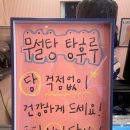 무설탕 탕후루
당 걱정없이
건강하게 드세요!